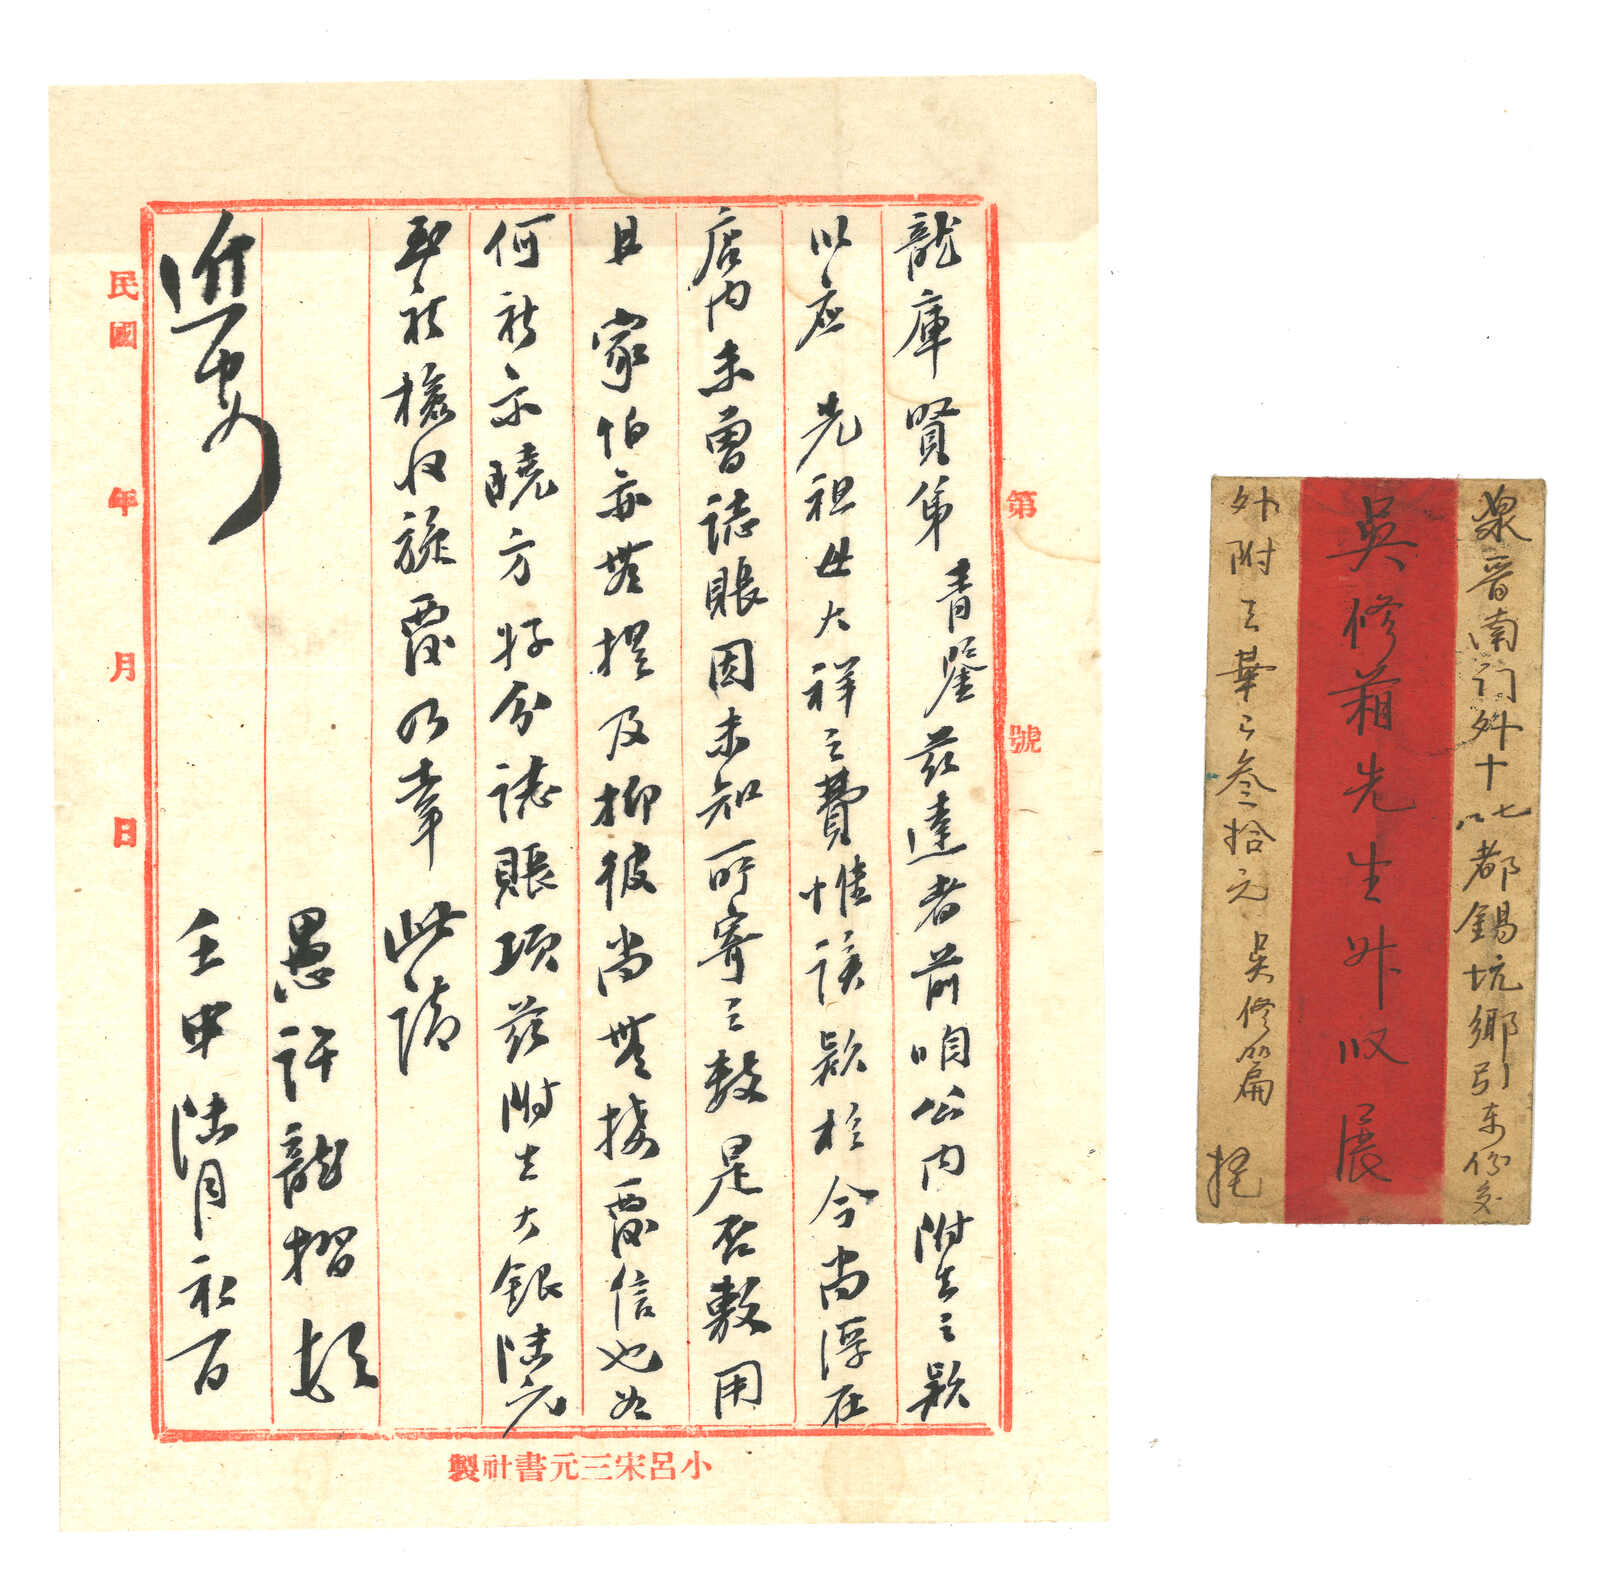 第 號
龍庫賢弟 青鑒茲達者前咱公內附去之款
以应 先祖母大祥之費惟該款於今尚浮在
店内未曾誌賬因未知所寄之数是否敷用
且 家伯亦無提及抑彼尚無接覆信也如
何祈示曉方好分誌賬項茲附去大銀陆元
至祈檢收旋覆乃幸 此請
近安
愚許龍摺頓
壬申陆月初百
民國 年 月 日
小呂宋三元書社製
泉晋南门外十七八都錫坑鄉引东份交
吳修葙先生升收展
外附去華口叁拾元 吴修篇 托